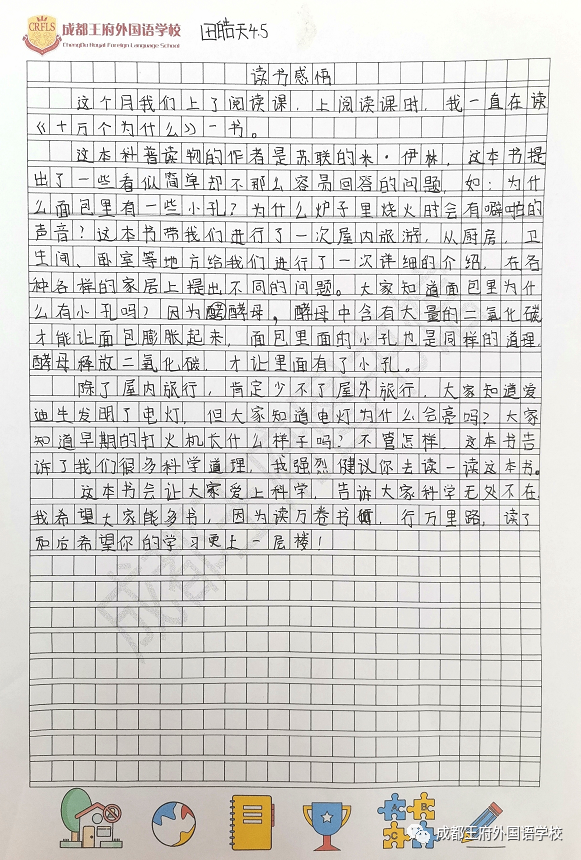 CRFLS 成都王府外国语学校 田皓天4.5
ChengDu Royal Foreign Language School
读书感悟
这个月我们上了阅读课，上阅读课时，我一直在读
《十万个为什么》一书。
这本科普读物的作者是苏联的米·伊林，这本书提
出了一些看似简单却不那么容易回答的问题，如：为什
么面包里有一些小孔？为什么炉子里烧火时会有噼啪的
声音？这本书带我们进行了一次屋内旅游，从厨房、卫
生间、卧室等地方给我们进行了一次详细的介绍，在各
种各样的家居上提出不同的问题。大家知道面包里为什
么有小孔吗？因为酵母，酵母中含有大量的二氧化碳
才能让面包膨胀起来，面包里面的小孔也是同样的道理，
酵母释放二氧化碳，才让里面有了小孔。
除了屋内旅行，肯定少不了屋外旅行，大家知道爱
迪生发明了电灯，但大家知道电灯为什么会亮吗？大家
知道早期的打火机长什么样子吗？不管怎样，这本书告
诉了我们很多科学道理，我强烈健议你去读一读这本书。
这本书会让大家爱上科学，告诉大家科学无处不在，
我希望大家能多书，因为读万卷书，行万里路，读了
和后希望你的学习更上一层楼！
成都王府外国语学校